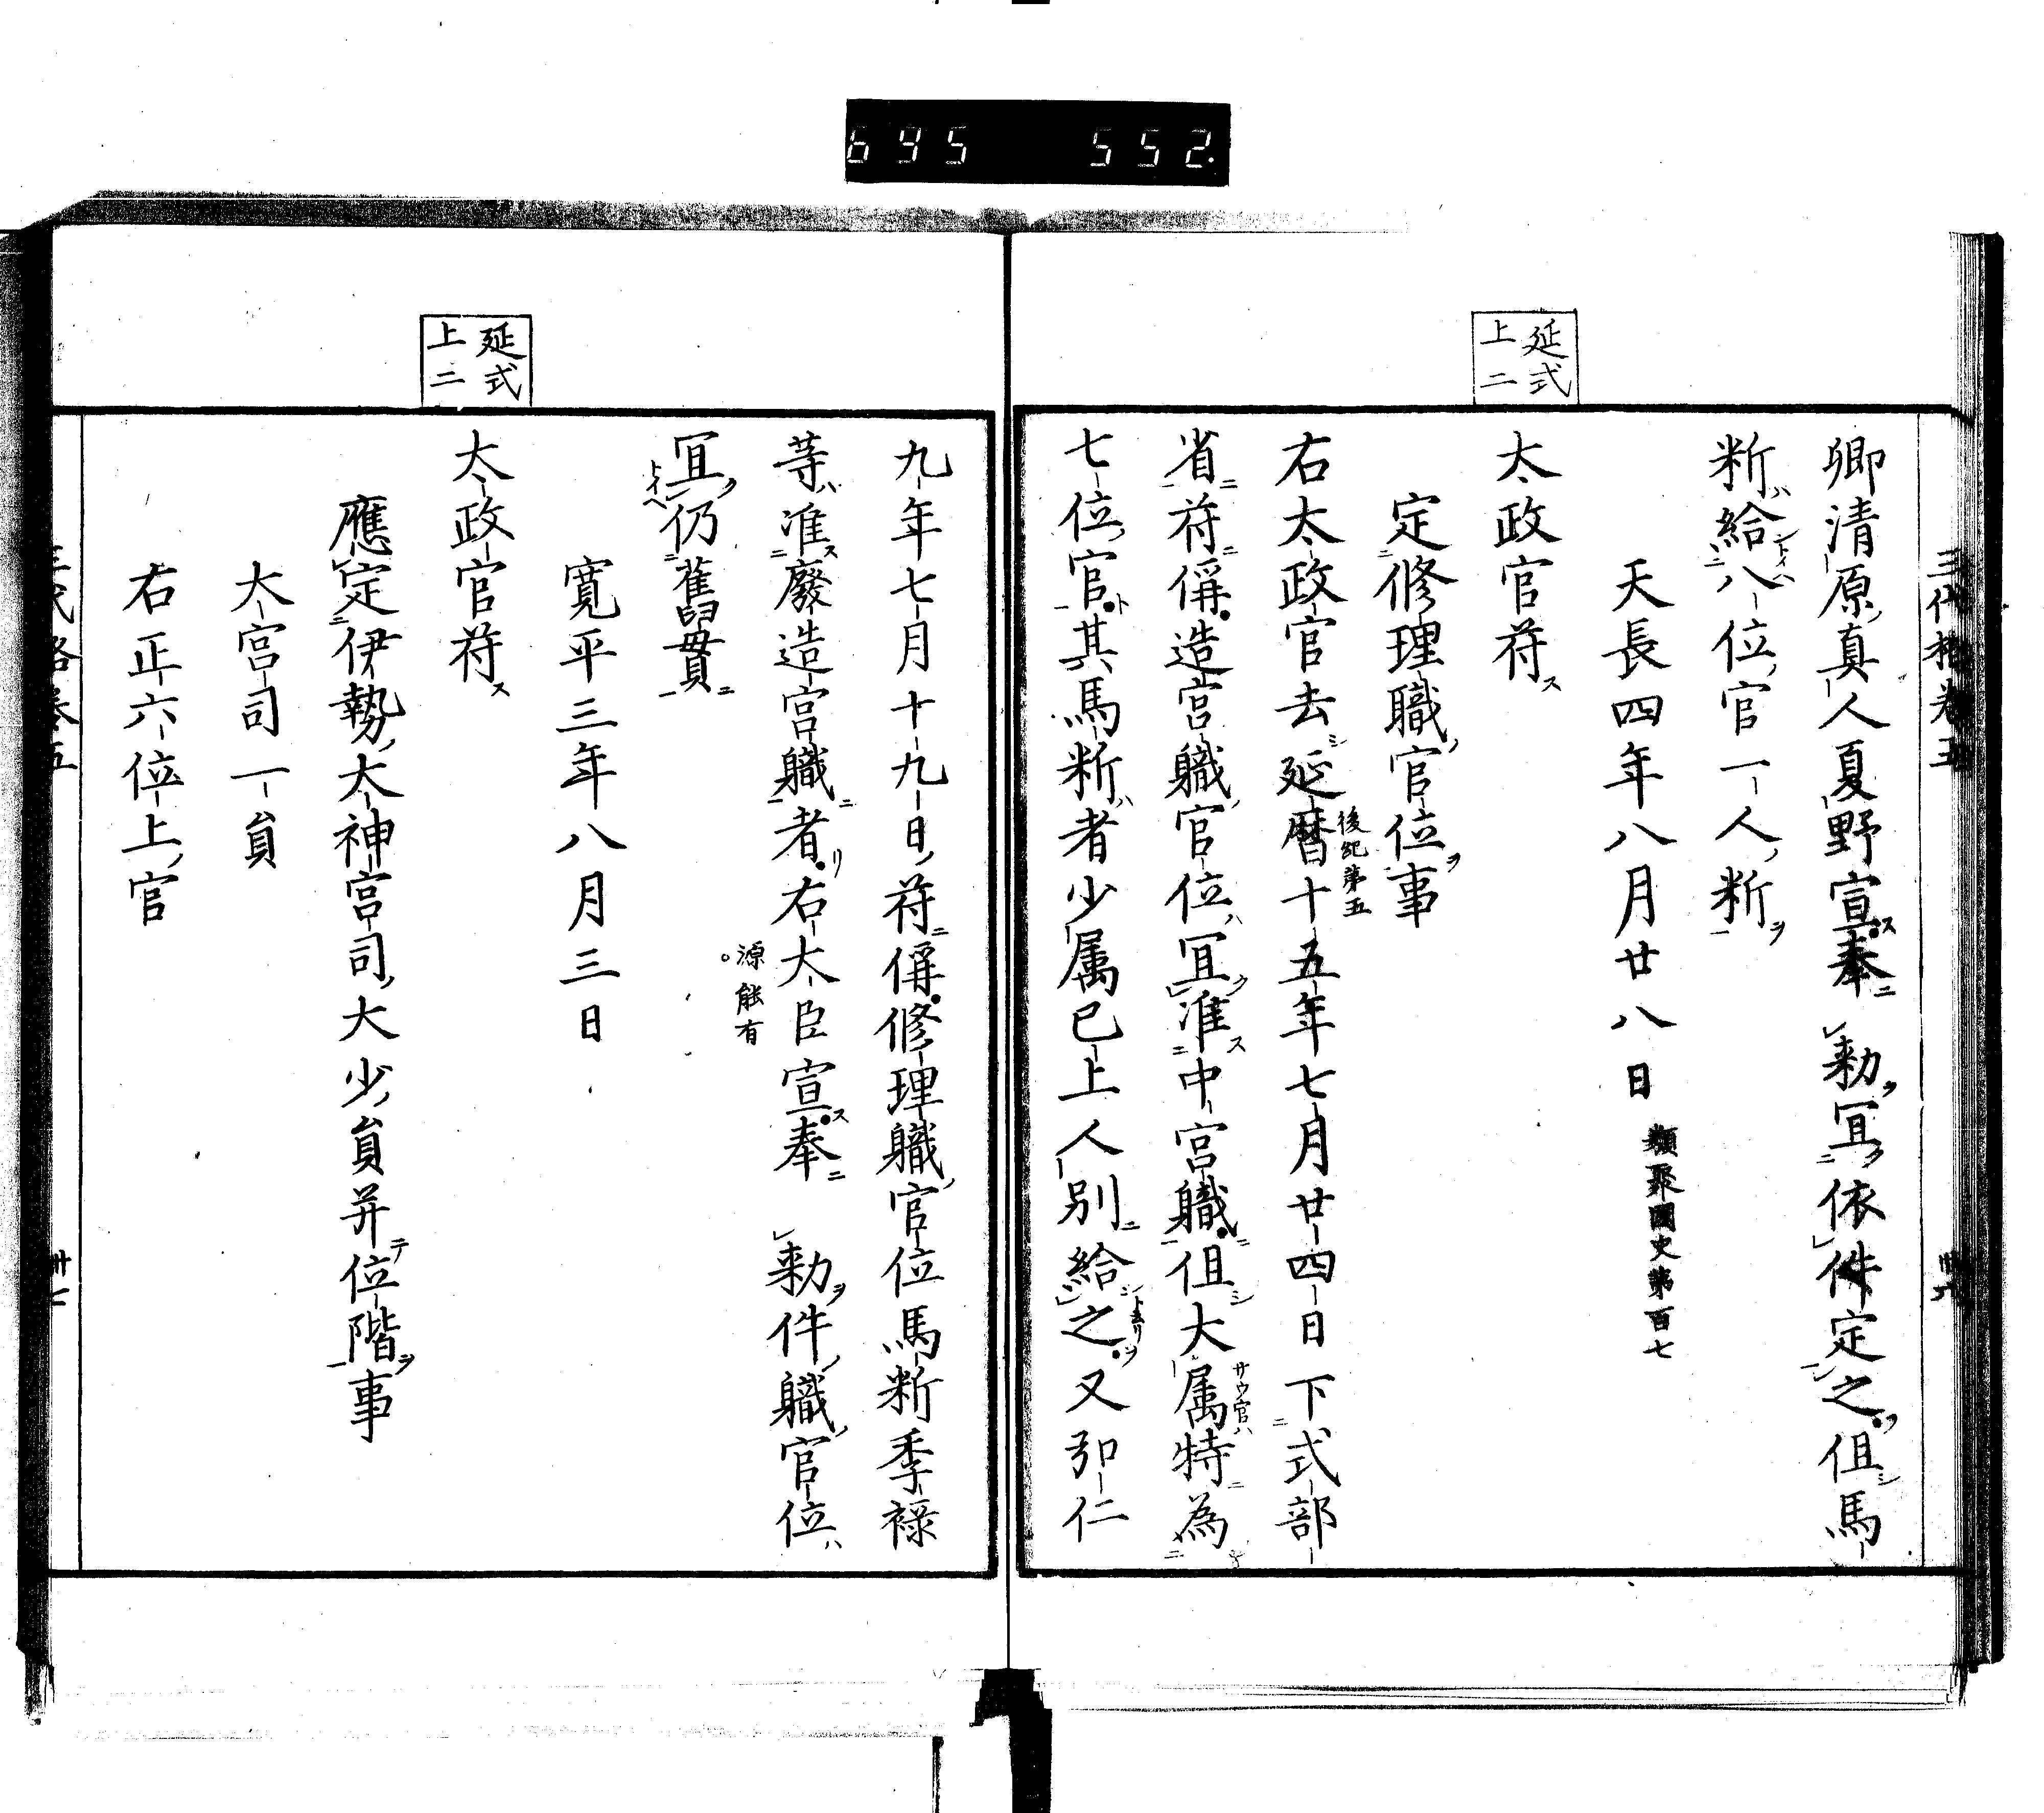 695 552.
延式
上二
三代格卷五
卌六
卿清原真人夏野宣奉　勅冝依件定之但馬
新給八位官一人新
天長四年八月廿八日　類聚國史第百七
太政官苻
定修理職官位事
右太政官去延暦十五年七月廿四日下式部
後紀第五
省苻偁造宮軄官位冝准中宮軄但大属特為
サウ官ハ
七位官其馬新者少属已上人別給之又弘仁
延式
上二
九年七月十九日苻偁修理軄官位馬新季禄
等准廢造宮軄者右大臣宣奉　勅件軄官位
源能有
冝仍舊貫
寛平三年八月三日
太政官苻
應定伊勢太神宮司大少貟并位階事
大宮司一貟
右正六位上官
三代格卷五
卌七